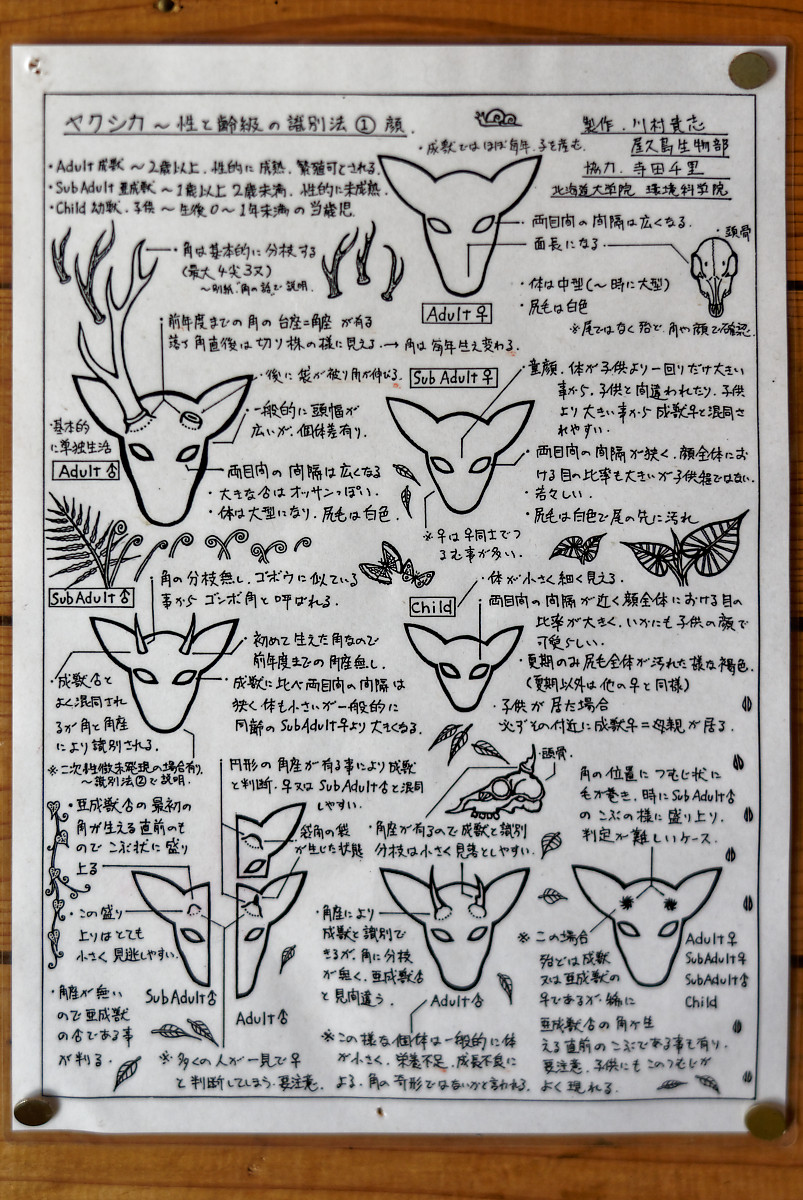 ヤクシカ～性と齢級の識別法① 顔.
製作.川村貴志
屋久島生物部
協力.寺田千里
北海道大学院 環境科学院
・Adult 成獣 ～2歳以上.性的に成熟.繁殖可とされる.
・SubAdult 亜成獣 ～1歳以上2歳未満.性的に未成熟.
・Child 幼獣.子供 ～生後0～1年未満の当歳児.
・成獣ではほぼ毎年.子を産む.
・両目間の間隔は広くなる.
・面長になる
・頭骨
・体は中型(～時に大型)
・尻毛は白色
※尾ではなく殆ど.角や顔で確認.
Adult ♀
・角は基本的に分枝する
(最大4尖3又)
～別紙."角の話"で説明.
・前年度までの角の台座=角座が有る
落角直後は切り株の様に見える.→角は毎年生え変わる.
・後に袋が被り角が伸びる.
・一般的に頭幅が
広いが.個体差有り.
・基本的
に単独生活
Adult ♂
・両目間の間隔は広くなる
・大きな♂はオッサンっぽい.
・体は大型になり.尻毛は白色.
Sub Adult ♀
・童顔.体が子供より一回りだけ大きい
事から.子供と間違われたり.子供
より大きい事から成獣♀と混同さ
れやすい.
・両目間の間隔が狭く.顔全体にお
ける目の比率も大きいが子供程ではない.
・若々しい.
・尻毛は白色で尾の先に汚れ
※♀は♀同士でつ
るむ事が多い.
SubAdult ♂
・角の分枝無し.ゴボウに似ている
事からゴンボ角と呼ばれる.
・初めて生えた角なので
前年度までの角座無し.
・成獣に比べ両目間の間隔は
狭く体も小さいが一般的に
同齢のSubAdult♀より大きくなる.
・成獣♂と
よく混同され
るが角と角座
により識別される.
※二次性徴未発現の場合有り.
～識別法②で説明.
Child
・体が小さく細く見える.
・両目間の間隔が近く顔全体における目の
比率が大きく.いかにも子供の顔で
可愛らしい.
・夏期のみ尻毛全体が汚れた様な褐色.
(夏期以外は他の♀と同様)
・子供が居た場合
必ずその付近に成獣♀=母親が居る.
・亜成獣♂の最初の
角が生える直前のも
のでこぶ状に盛り
上る
・この盛り
上りはとても
小さく見逃しやすい.
SubAdult♂
・角座が無い
ので亜成獣
の♂である事
が判る.
円形の角座が有る事により成獣
と判断.♀又はSubAdult♂と混同
しやすい.
袋角の袋
が生じた状態
Adult♂
※多くの人が一見で♀
と判断してしまう.要注意.
・頭骨.
・角座が有るので成獣と識別
分枝は小さく見落としやすい.
・角座により
成獣と識別で
きるが.角に分枝
が無く.亜成獣♂
と見間違う.
Adult♂
※この様な個体は一般的に体
が小さく.栄養不足.成長不良に
よる.角の奇形ではないかと言われる.
角の位置につむじ状に
毛が巻き.時にSubAdult♂
のこぶの様に盛り上り.
判定が難しいケース.
※この場合
殆どは成獣
又は亜成獣の
♀であるが.稀に
亜成獣♂の角が生
える直前のこぶである事も有り.
要注意.子供にもこのつむじが
よく現れる.
Adult♀
SubAdult♀
SubAdult♂
Child